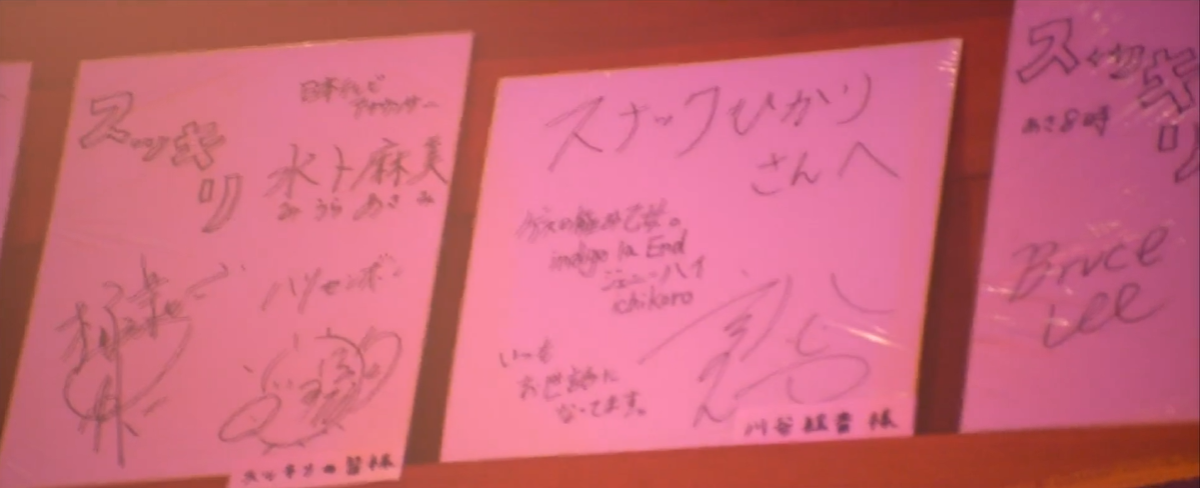 スッキリ
日本テレビ
アナウンサー
水卜麻美
みうら あさみ
ハリセンボン
スッキリの皆様
スナックひかり
さんへ
ゲスの極み乙女。
indigo la End
ジェニーハイ
chikoro
いつも
お世話に
なってます。
川谷絵音 様
スッキリ
あさ8時
Bruce
Lee